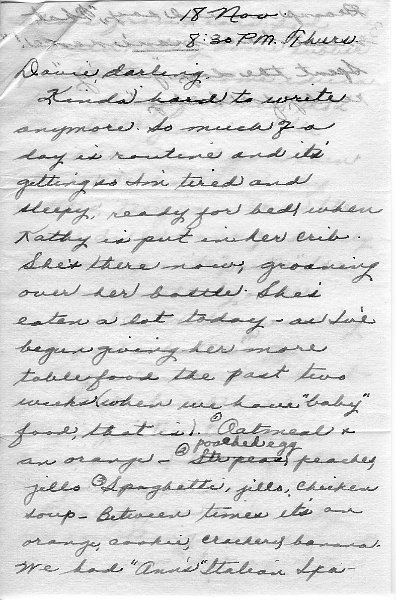 18 Nov
8:30 P.M. Thurs.
Davie darling,
Kinda' hard to write
anymore. So much of a
day is routine and it's
getting so I'm tired and
sleepy, ready for bed, when
Kathy is put in her crib.
She's there now, groaning
over her bottle. She's
eaten a lot today - as I've
begun giving her more
tablefood the past two
weeks (when we have "baby"
food, that is). ① Oatmeal &
poached egg
an orange - ② peaches,
jello ③ Spaghetti, jello, chicken
soup - Between times it's an
orange, cookie, crackers, banana.
We had "Ann's" Italian Spa-